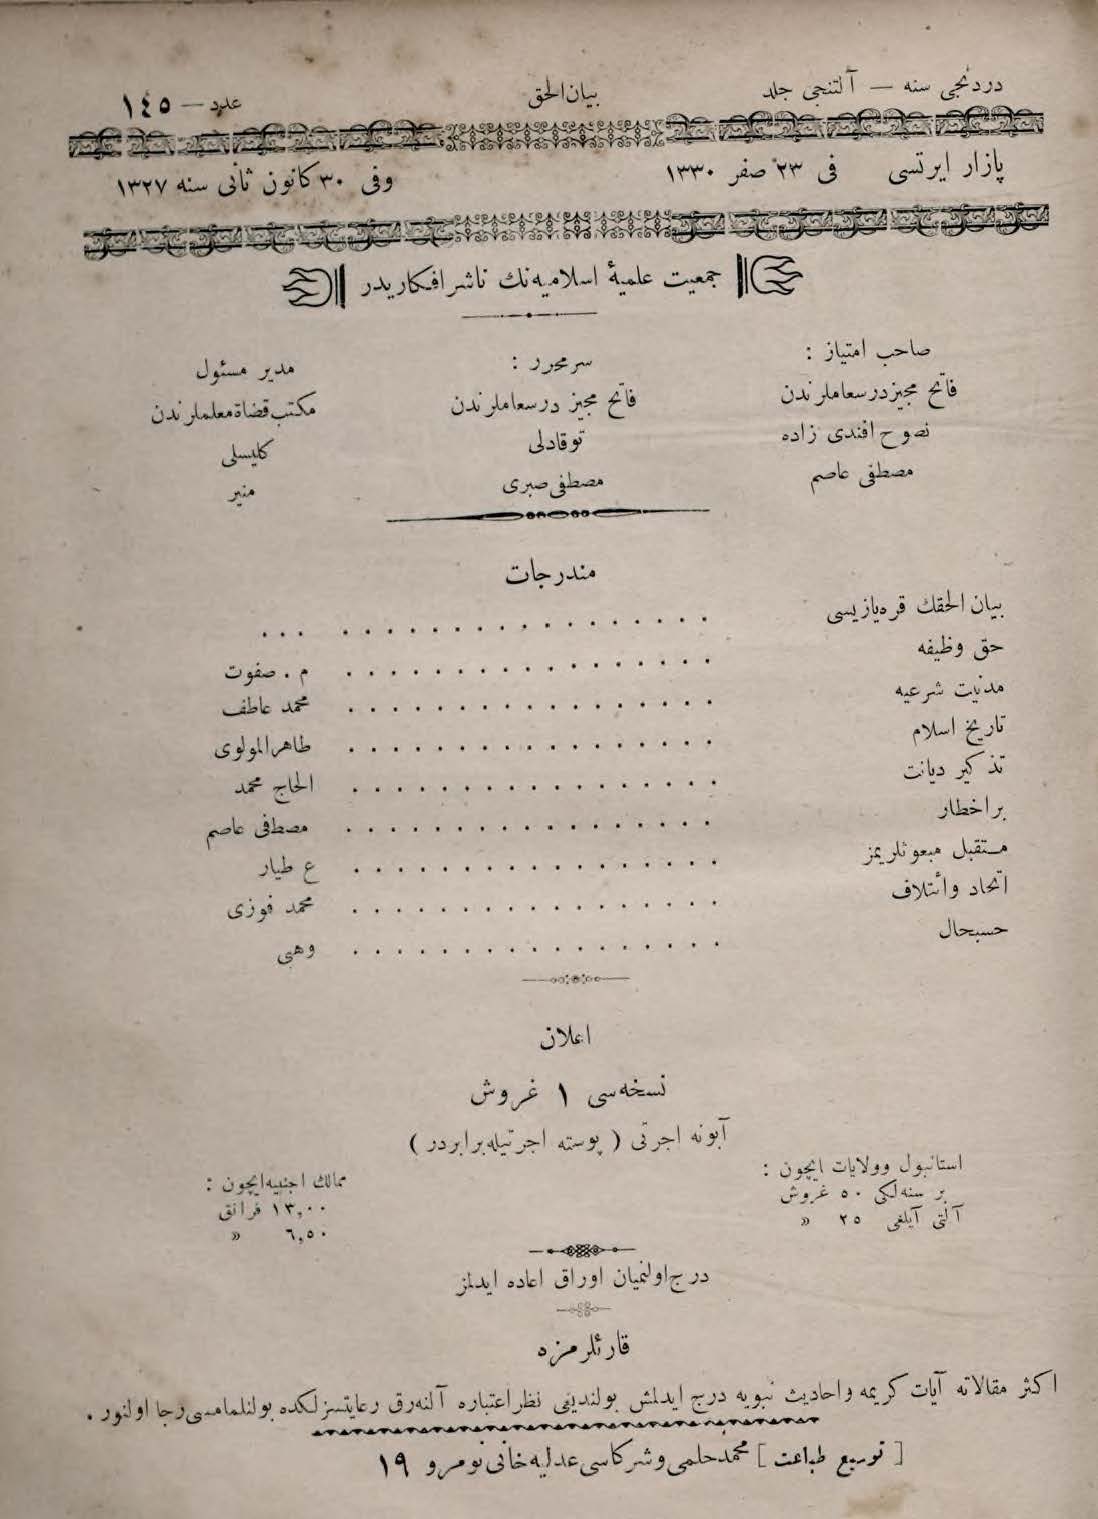 دردنجی سنه — آلتنجی جلد
بیان‌الحق
عدد — ١٤٥
پازار ایرتسی فی ٢٣ صفر ١٣٣٠
وفی ٣٠ کانون ثانی سنه ١٣٢٧
جمعیت علمیهٔ اسلامیه‌نك ناشر افکاریدر
صاحب امتیاز :
فاتح مجیزدرسعاملرندن
نصوح افندی زاده
مصطفی عاصم
سر محرر :
فاتح مجیز درسعاملرندن
توقادلی
مصطفی صبری
مدیر مسئول
مکتب قضاة معلملرندن
کلیسلی
منیر
مندرجات
بیان الحقك قره‌یازیسی . . . . . . . . . . . . . . . . . ...
حق وظیفه . . . . . . . . . . . . . . . . . م . صفوت
مدنیت شرعیه . . . . . . . . . . . . . . . . . محمد عاطف
تاریخ اسلام . . . . . . . . . . . . . . . . . طاهر المولوی
تذکیر دیانت . . . . . . . . . . . . . . . . . الحاج محمد
بر اخطار . . . . . . . . . . . . . . . . . مصطفی عاصم
مستقبل مبعوثلریمز . . . . . . . . . . . . . . . . . ع طیار
اتحاد وائتلاف . . . . . . . . . . . . . . . . . محمد فوزی
حسبحال . . . . . . . . . . . . . . . . . وهبی
اعلان
نسخه‌سی ١ غروش
آبونه اجرتی ( پوسته اجرتیله برابردر )
استانبول وولایات ایچون :
بر سنه‌لکی ٥٠ غروش
آلتی آیلغی ٢٥ »
ممالك اجنبیه ایچون :
١٣,٠٠ فرانق
٦,٥٠ »
درج اولنمیان اوراق اعاده ایدلمز
قارئلرمزه
اکثر مقالاته آیات کریمه واحادیث نبویه درج ایدلمش بولندیغی نظر اعتباره آلنه‌رق رعایتسزلکده بولنلمامسی رجا اولنور .
[ توسیع طباعت ] محمد حلمی و شرکاسی عدلیه خانی نومرو ١٩